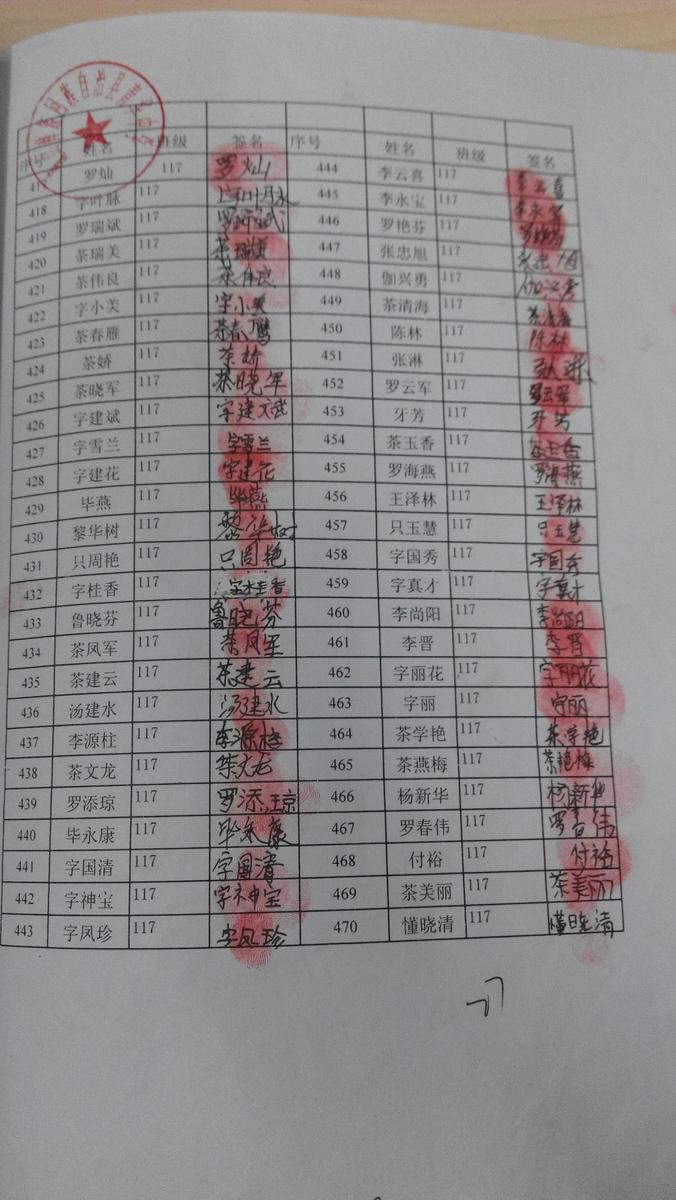 序号 姓名 班级 签名 序号 姓名 班级 签名
417 罗灿 117 罗灿 444 李云喜 117 李云喜
418 字叶脉 117 字叶脉 445 李永宝 117 李永宝
419 罗瑞斌 117 罗瑞斌 446 罗艳芬 117 罗艳芬
420 茶瑞美 117 茶瑞美 447 张忠旭 117 张忠旭
421 茶伟良 117 茶伟良 448 伽兴勇 117 伽兴勇
422 字小美 117 字小美 449 茶清海 117 茶清海
423 茶春雁 117 茶春雁 450 陈林 117 陈林
424 茶娇 117 茶娇 451 张淋 117 张淋
425 茶晓军 117 茶晓军 452 罗云军 117 罗云军
426 字建斌 117 字建斌 453 牙芳 117 牙芳
427 字雪兰 117 字雪兰 454 茶玉香 117 茶玉香
428 字建花 117 字建花 455 罗海燕 117 罗海燕
429 毕燕 117 毕燕 456 王泽林 117 王泽林
430 黎华树 117 黎华树 457 只玉慧 117 只玉慧
431 只周艳 117 只周艳 458 字国秀 117 字国秀
432 字桂香 117 字桂香 459 字真才 117 字真才
433 鲁晓芬 117 鲁晓芬 460 李尚阳 117 李尚阳
434 茶凤军 117 茶凤军 461 李晋 117 李晋
435 茶建云 117 茶建云 462 字丽花 117 字丽花
436 汤建水 117 汤建水 463 字丽 117 字丽
437 李源柱 117 李源柱 464 茶学艳 117 茶学艳
438 茶文龙 117 茶文龙 465 茶燕梅 117 茶艳梅
439 罗添琼 117 罗添琼 466 杨新华 117 杨新华
440 毕永康 117 毕永康 467 罗春伟 117 罗春伟
441 字国清 117 字国清 468 付裕 117 付裕
442 字神宝 117 字神宝 469 茶美丽 117 茶美丽
443 字凤珍 117 字凤珍 470 懂晓清 117 懂晓清